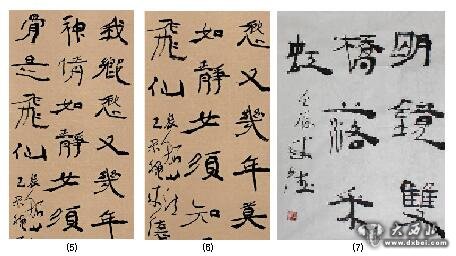 我鄉愁又幾年
神情如靜女須
骨是飛仙
(5)
愁又幾年莫
如靜女須知
飛仙
(6)
明鏡雙
橋落采
虹
(7)
大西北
www.dxbei.com